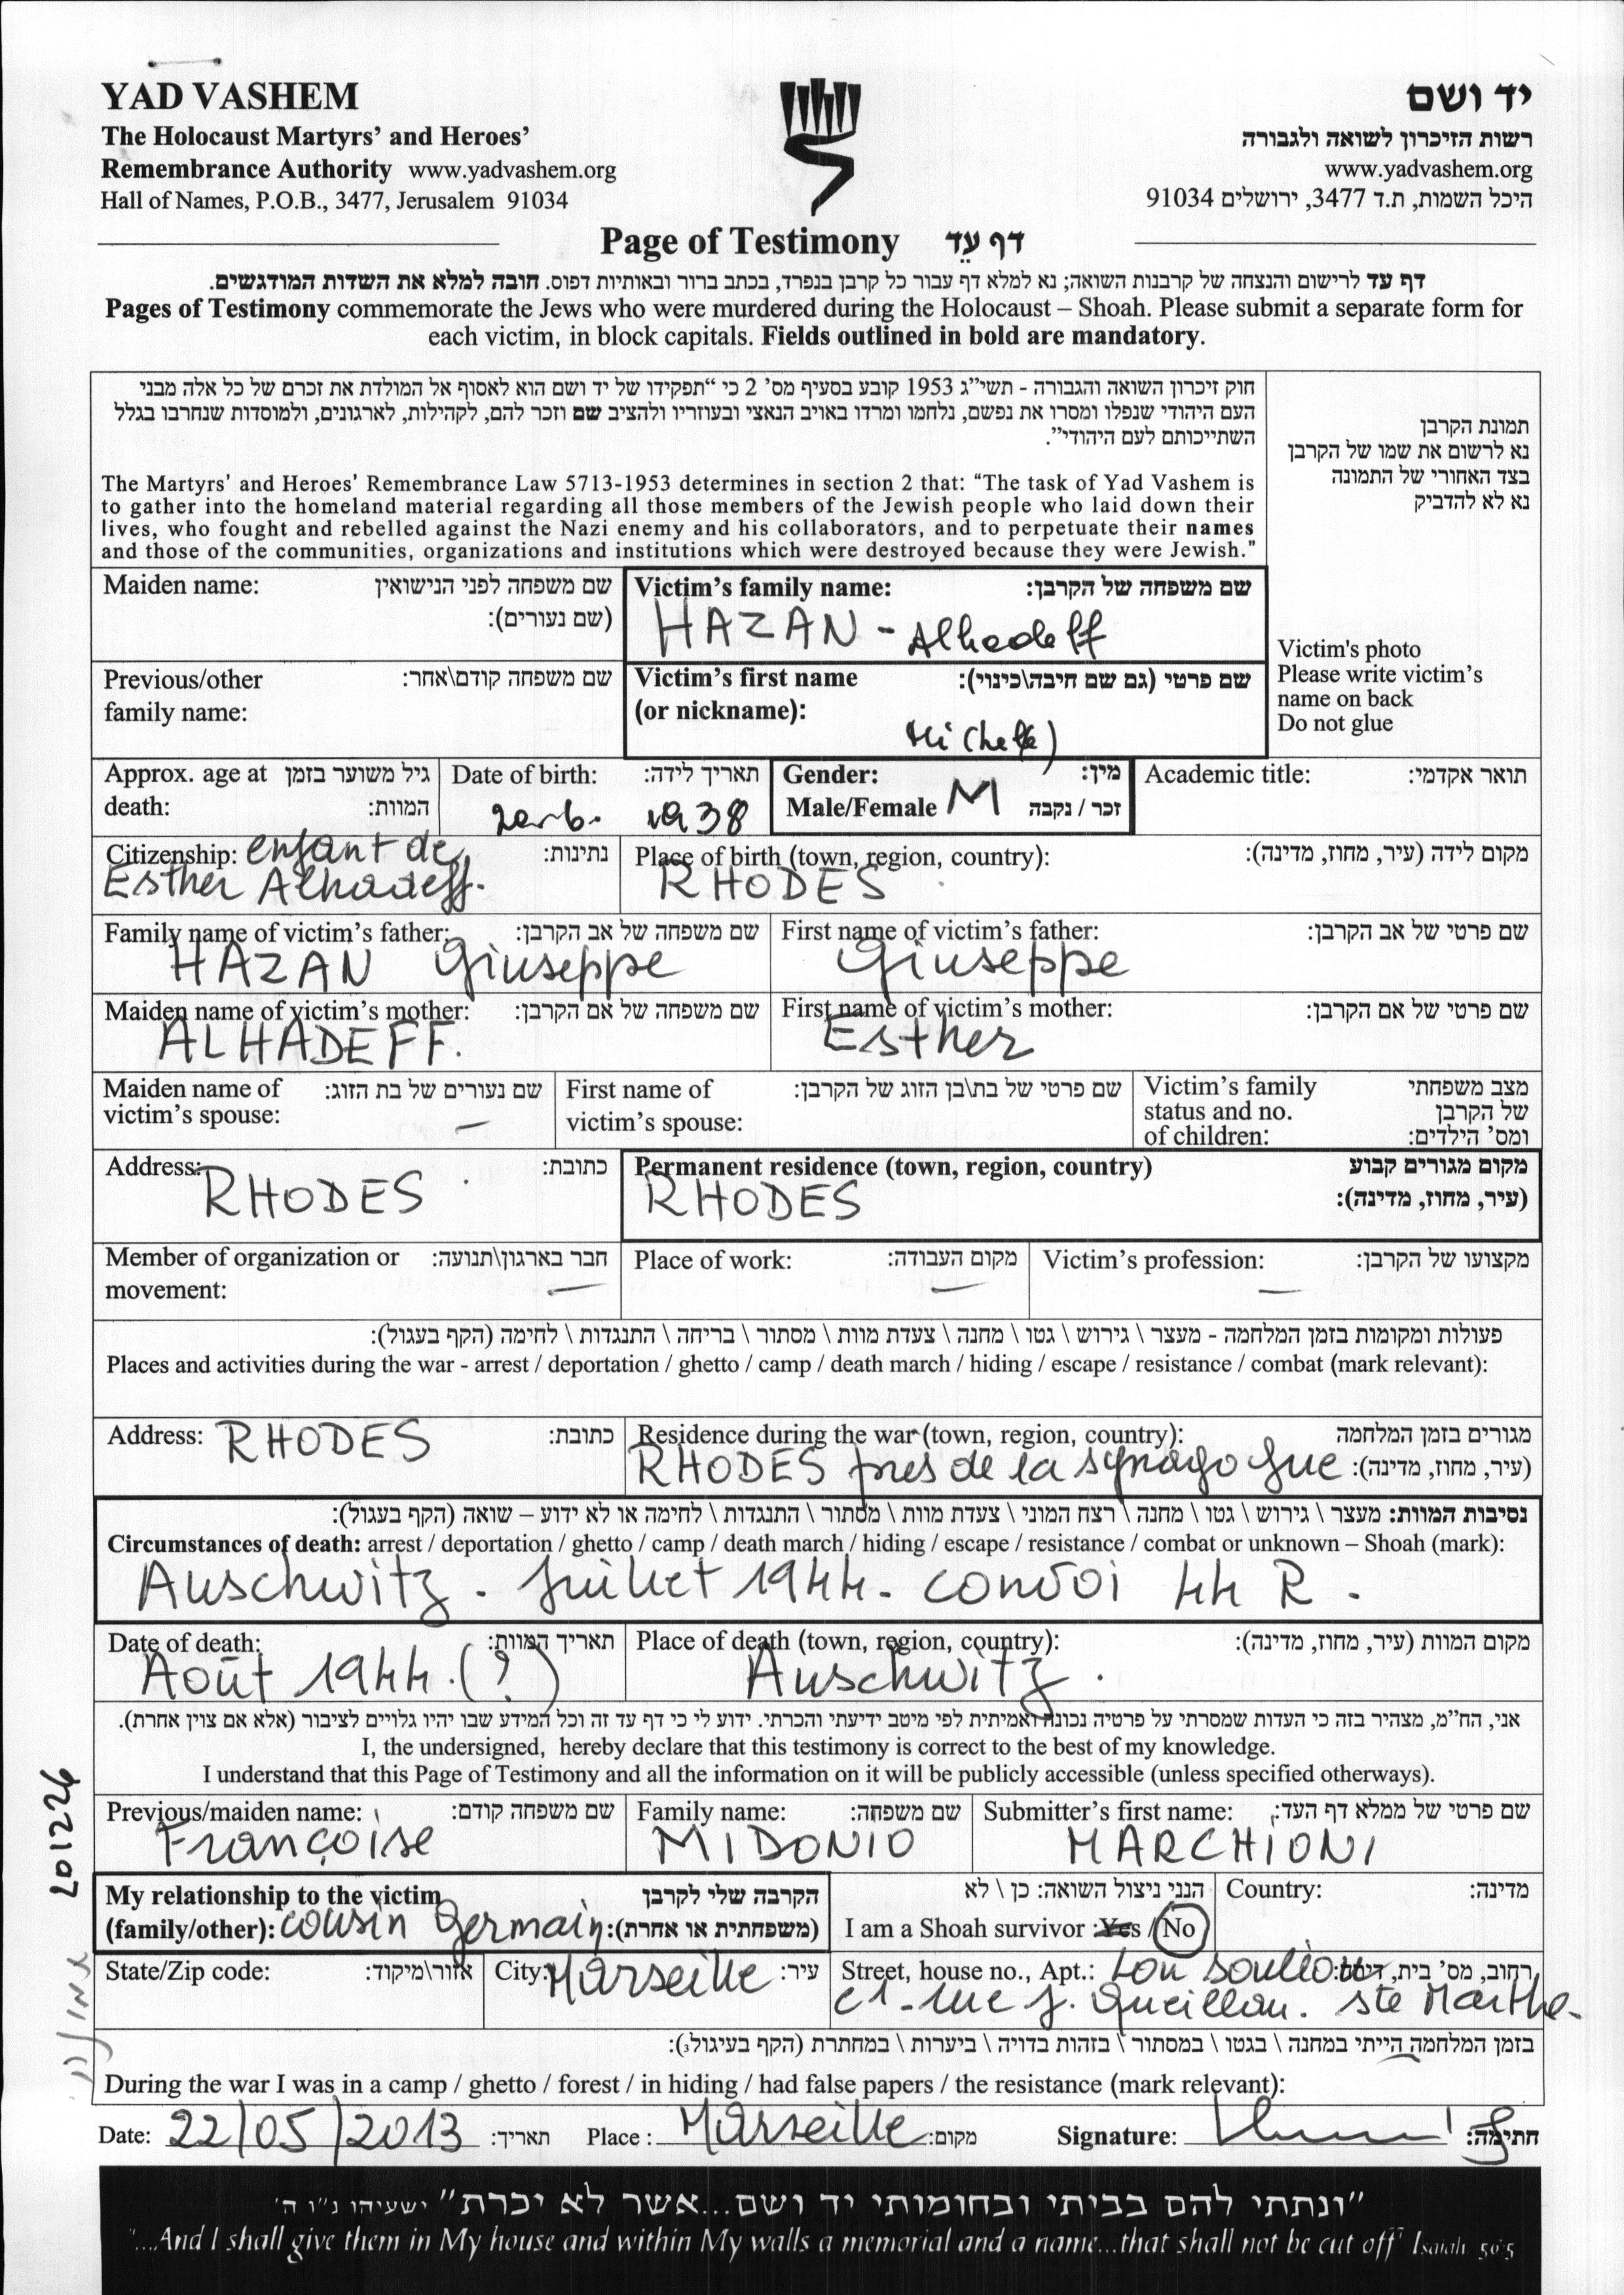 YAD VASHEM
The Holocaust Martyrs' and Heroes'
Remembrance Authority www.yadvashem.org
Hall of Names, P.O.B., 3477, Jerusalem 91034
יד ושם
רשות הזיכרון לשואה ולגבורה
www.yadvashem.org
היכל השמות, ת.ד 3477, ירושלים 91034
Page of Testimony דף עֵד
דף עד לרישום והנצחה של קרבנות השואה; נא למלא דף עבור כל קרבן בנפרד, בכתב ברור ובאותיות דפוס. חובה למלא את השדות המודגשים.
Pages of Testimony commemorate the Jews who were murdered during the Holocaust – Shoah. Please submit a separate form for
each victim, in block capitals. Fields outlined in bold are mandatory.
חוק זיכרון השואה והגבורה - תשי"ג 1953 קובע בסעיף מס' 2 כי "תפקידו של יד ושם הוא לאסוף אל המולדת את זכרם של כל אלה מבני
העם היהודי שנפלו ומסרו את נפשם, נלחמו ומרדו באויב הנאצי ובעוזריו ולהציב שם וזכר להם, לקהילות, לארגונים, ולמוסדות שנחרבו בגלל
השתייכותם לעם היהודי".
The Martyrs' and Heroes' Remembrance Law 5713-1953 determines in section 2 that: "The task of Yad Vashem is
to gather into the homeland material regarding all those members of the Jewish people who laid down their
lives, who fought and rebelled against the Nazi enemy and his collaborators, and to perpetuate their names
and those of the communities, organizations and institutions which were destroyed because they were Jewish."
תמונת הקרבן
נא לרשום את שמו של הקרבן
בצד האחורי של התמונה
נא לא להדביק
Victim's photo
Please write victim's
name on back
Do not glue
Maiden name: שם משפחה לפני הנישואין
(שם נעורים):
Victim's family name: שם משפחה של הקרבן:
HAZAN - Alhadeff
Previous/other שם משפחה קודם\אחר:
family name:
Victim's first name שם פרטי (גם שם חיבה\כינוי):
(or nickname):
Approx. age at גיל משוער בזמן
death: המוות:
Date of birth: תאריך לידה:
1938
Gender: מין:
Male/Female M זכר / נקבה
Academic title: תואר אקדמי:
Citizenship: enfant de נתינות:
Esther Alhadeff.
Place of birth (town, region, country): מקום לידה (עיר, מחוז, מדינה):
RHODES
Family name of victim's father: שם משפחה של אב הקרבן:
HAZAN Giuseppe
First name of victim's father: שם פרטי של אב הקרבן:
Giuseppe
Maiden name of victim's mother: שם משפחה של אם הקרבן:
ALHADEFF.
First name of victim's mother: שם פרטי של אם הקרבן:
Esther
Maiden name of שם נעורים של בת הזוג:
victim's spouse: —
First name of שם פרטי של בת\בן הזוג של הקרבן:
victim's spouse:
Victim's family מצב משפחתי
status and no. של הקרבן
of children: ומס' הילדים:
Address: כתובת:
RHODES
Permanent residence (town, region, country) מקום מגורים קבוע
RHODES (עיר, מחוז, מדינה):
Member of organization or חבר בארגון\תנועה:
movement: —
Place of work: מקום העבודה:
—
Victim's profession: מקצועו של הקרבן:
—
פעולות ומקומות בזמן המלחמה - מעצר \ גירוש \ גטו \ מחנה \ צעדת מוות \ מסתור \ בריחה \ התנגדות \ לחימה (הקף בעגול):
Places and activities during the war - arrest / deportation / ghetto / camp / death march / hiding / escape / resistance / combat (mark relevant):
Address: RHODES כתובת:
Residence during the war (town, region, country): מגורים בזמן המלחמה
RHODES près de la synagogue (עיר, מחוז, מדינה):
נסיבות המוות: מעצר \ גירוש \ גטו \ מחנה \ רצח המוני \ צעדת מוות \ מסתור \ התנגדות \ לחימה או לא ידוע – שואה (הקף בעגול):
Circumstances of death: arrest / deportation / ghetto / camp / death march / hiding / escape / resistance / combat or unknown – Shoah (mark):
Auschwitz. Juillet 1944. convoi 44 R.
Date of death: תאריך המוות:
Août 1944. (?)
Place of death (town, region, country): מקום המוות (עיר, מחוז, מדינה):
Auschwitz.
אני, הח"מ, מצהיר בזה כי העדות שמסרתי על פרטיה נכונה ואמיתית לפי מיטב ידיעתי והכרתי. ידוע לי כי דף עד זה וכל המידע שבו יהיו גלויים לציבור (אלא אם צוין אחרת).
I, the undersigned, hereby declare that this testimony is correct to the best of my knowledge.
I understand that this Page of Testimony and all the information on it will be publicly accessible (unless specified otherways).
Previous/maiden name: שם משפחה קודם:
Françoise
Family name: שם משפחה:
MIDONIO
Submitter's first name: שם פרטי של ממלא דף העד:
MARCHIONI
My relationship to the victim הקרבה שלי לקרבן
(family/other): cousin germain (משפחתית או אחרת):
הנני ניצול השואה: כן \ לא
I am a Shoah survivor : Yes / No
Country: מדינה:
State/Zip code: אזור\מיקוד:
City: Marseille עיר:
Street, house no., Apt.: Lou רחוב, מס' בית, דירה:
rue J. Queillau. Ste Marthe.
בזמן המלחמה הייתי במחנה \ בגטו \ במסתור \ בזהות בדויה \ ביערות \ במחתרת (הקף בעיגול):
During the war I was in a camp / ghetto / forest / in hiding / had false papers / the resistance (mark relevant):
Date: 22/05/2013 תאריך: Place : Marseille מקום: Signature: חתימה:
"ונתתי להם בביתי ובחומותי יד ושם...אשר לא יכרת" ישעיהו נ"ו ה'
"...And I shall give them in My house and within My walls a memorial and a name...that shall not be cut off" Isaiah 56:5
201226